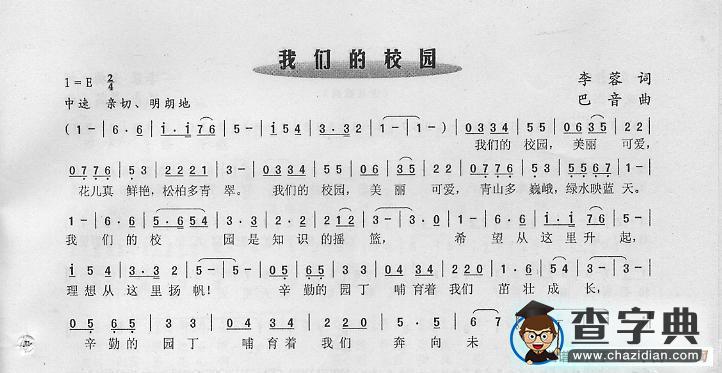 我们的校园
1=E 2/4 李蓉 词
中速 亲切、明朗地 巴音 曲
( 1 - | 6 · 6 | i · i 7 6 | 5 - | i 5 4 | 3 · 3 2 | 1 - | 1 - ) | 0 3 3 4 | 5 5 | 0 6 3 5 | 2 2 |
我们的 校园， 美丽 可爱，
0 7 7 6 | 5 3 | 2 2 2 1 | 3 - | 0 3 3 4 | 5 5 | 0 6 3 5 | 2 2 | 0 7 7 6 | 5 3 | 5 5 6 7 | 1 - |
花儿真 鲜艳，松柏多青 翠。 我们的 校园， 美丽 可爱， 青山多 巍峨，绿水映蓝 天。
1 - | 6 · 6 | 5 · 6 5 4 | 3 - | i 5 4 | 3 · 2 | 2 1 2 | 3 - | 3 0 | 1 - | 6 · 6 | i · i 7 6 | 5 - |
我 们的 校 园 是知 识的 摇 篮， 希 望从 这里升 起，
i 5 4 | 3 · 3 2 | 1 - | 1 - | 0 5 6 5 | 3 · 3 | 0 4 4 4 | 2 2 0 | 5 · 5 | 6 7 | 1 - | 1 0 |
理想从 这里扬 帆！ 辛勤的 园丁 哺育着 我们 茁壮 成长，
0 5 6 5 | 3 · 3 | 0 4 4 4 | 2 2 0 | 5 · 5 | 6
辛勤的 园丁 哺育着 我们 奔向 未
查字典
www.chazidian.com